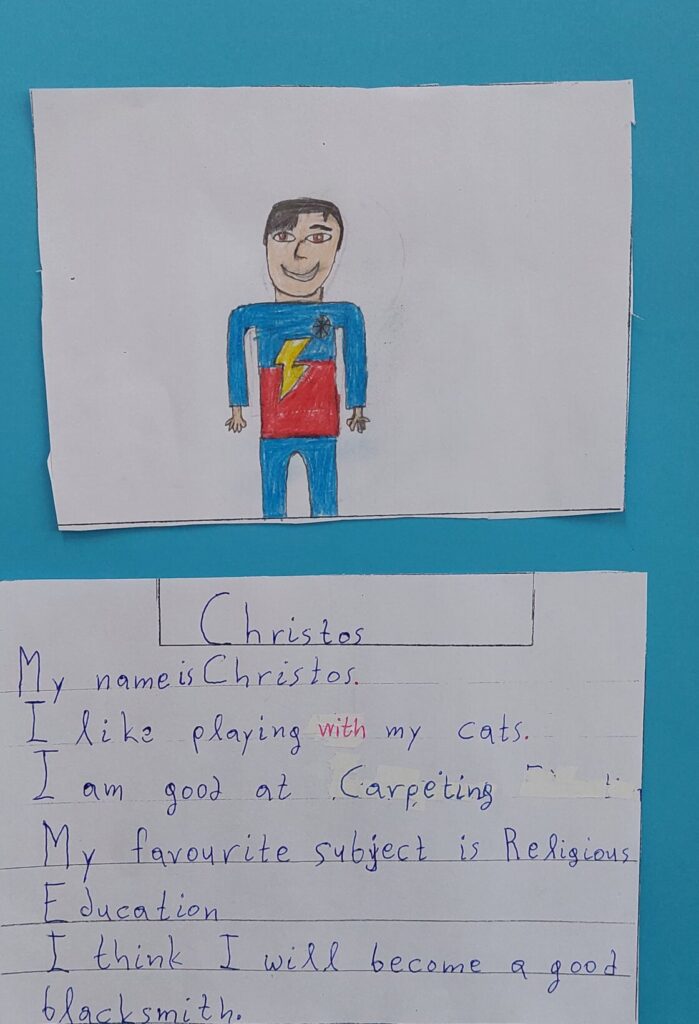 Christos
My name is Christos.
I like playing with my cats.
I am good at Carpeting
My favourite subject is Religious
Education
I think I will become a good
blacksmith.